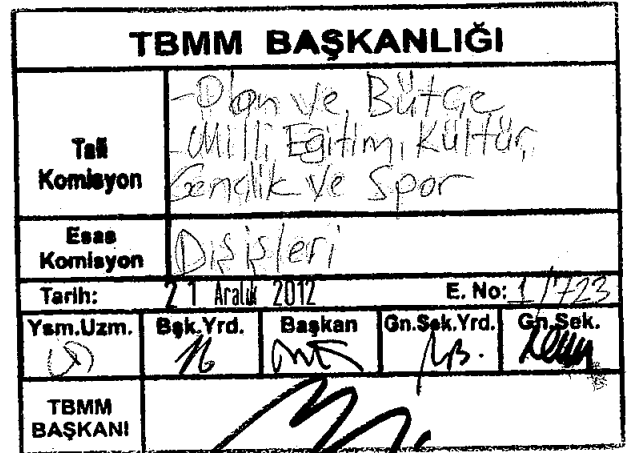 TBMM BAŞKANLIĞI
Tali Komisyon
-Plan ve Bütçe
-Milli Eğitim, Kültür,
Gençlik ve Spor
Esas Komisyon
Dışişleri
Tarih: 21 Aralık 2012 E. No: 1/723
Ysm.Uzm. Bşk.Yrd. Başkan Gn.Sek.Yrd. Gn.Sek.
TBMM
BAŞKANI